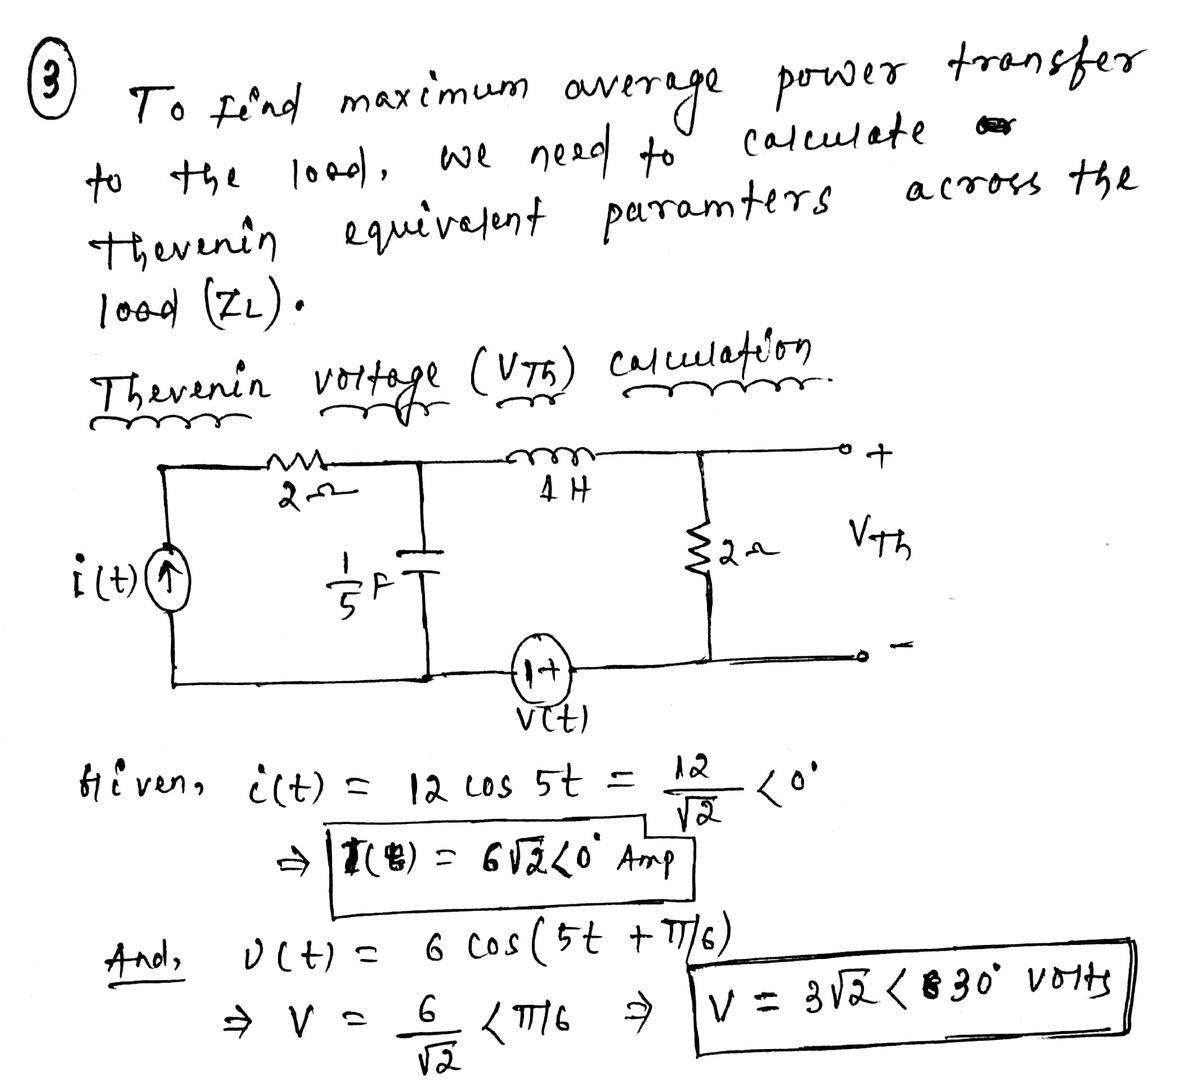 3
To find maximum average power transfer
to the load, we need to calculate
thevenin equivalent paramters across the
load (ZL).
Thevenin voltage (VTh) calculation
2Ω
1 H
+
i(t)
1/5 F
2Ω
VTh
+
-
v(t)
Given, i(t) = 12 cos 5t = 12/√2 <0°
⇒ I() = 6√2<0° Amp
And, v(t) = 6 cos(5t + π/6)
⇒ V = 6/√2 <π/6 ⇒ V = 3√2 < 30° volts